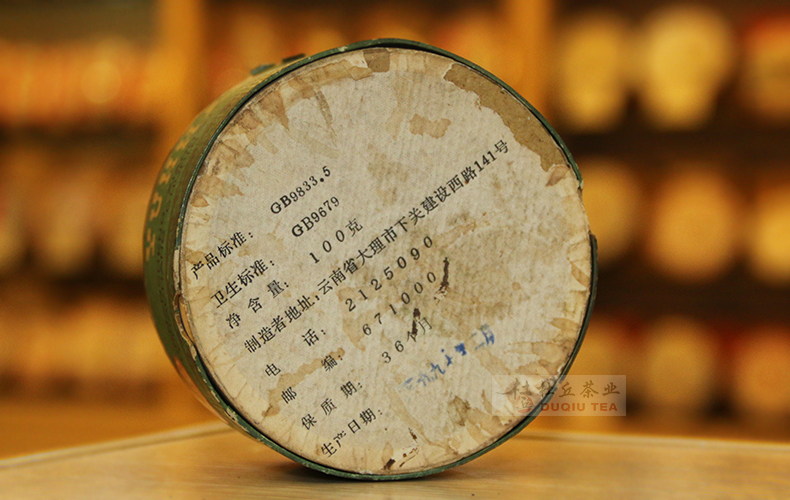 产品标准: GB9833.5
卫生标准: GB9679
净含量: 100克
制造者地址: 云南省大理市下关建设西路141号
电话: 2125090
邮编: 671000
保质期: 36个月
生产日期:
丘茶业
DUQIU TEA